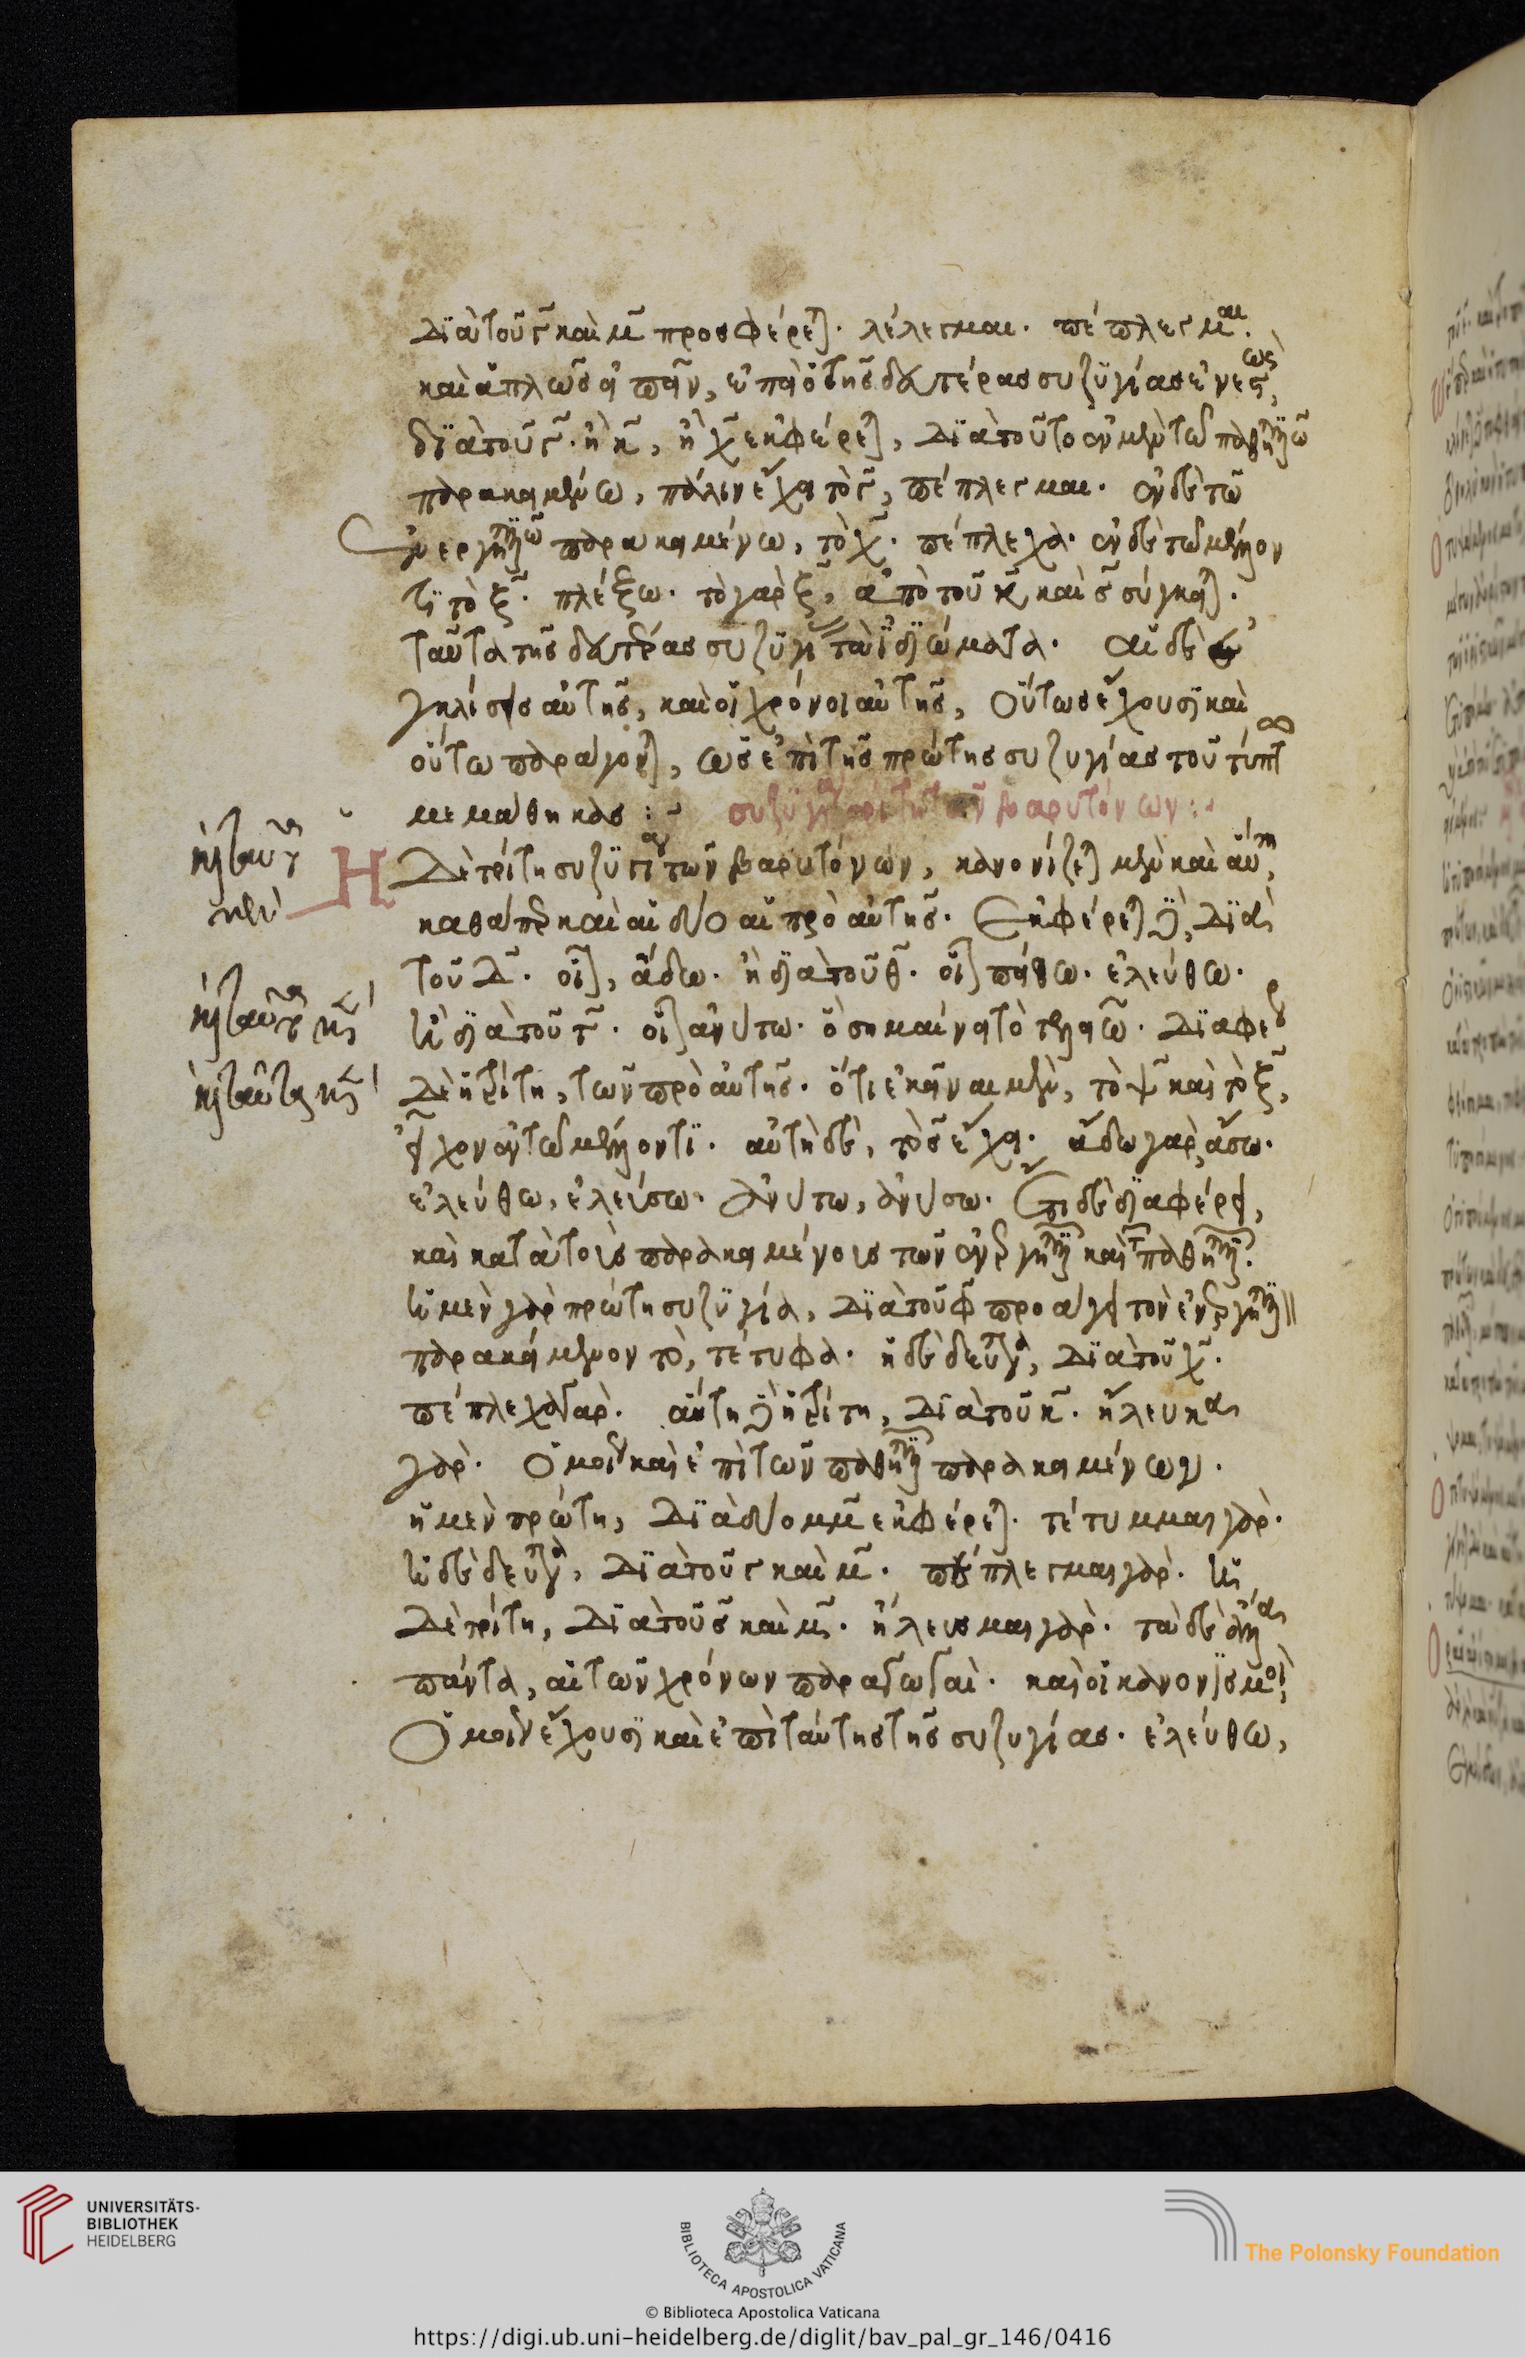 διὰ τοῦ γ̄ καὶ μ̄ προσφέρεται. λέλεγμαι. πέπλεγμαι.
καὶ ἁπλῶς εἰπεῖν, ἐπεὶ ὁ τῆς δευτέρας συζυγίας ἐνεστὼς,
διὰ τοῦ γ̄. ἢ κ̄, ἢ χ̄ ἐκφέρεται, διὰ τοῦτο ἐν μὲν τῶ παθητικῶ
παρακειμένω, πάλιν ἔχει τὸ γ̄, πέπλεγμαι. ἐν δὲ τῶ
ἐνεργητικῶ παρακειμένω, τὸ χ̄. πέπλεχα. ἐν δὲ τῶ μέλλον
τι τὸ ξ̄. πλέξω. τὸ γὰρ ξ̄, ἀπὸ τοῦ κ̄ καὶ σ̄ σύγκειται.
ταῦτα τῆς δευτέρας συζυγίας τὰ ἰδιώματα. αἱ δὲ
ἐγκλίσεις αὐτῆς, καὶ οἱ χρόνοι αὐτῆς, οὕτως ἔχουσι καὶ
οὕτω παράγονται, ὡς ἐπὶ τῆς πρώτης συζυγίας τοῦ τύπτω
μεμάθηκας :
συζυγία τρίτη τῶν βαρυτόνων :
Η δὲ τρίτη συζυγία τῶν βαρυτόνων, κανονίζεται μὲν καὶ αὕτη,
καθάπερ καὶ αἱ δύο αἱ πρὸ αὐτῆς. ἐκφέρεται δὲ, διὰ
τοῦ δ̄. οἷον, ἄδω. ἢ διὰ τοῦ θ̄. οἷον πείθω. ἐλεύθω.
ἢ διὰ τοῦ τ̄. οἷον ἀνύτω. ὃ σημαίνει τὸ τελειῶ. διαφέρει
δὲ ἡ τρίτη, τῶν πρὸ αὐτῆς. ὅτι ἐκεῖναι μὲν, τὸ ψ̄ καὶ τὸ ξ̄,
εἶχον ἐν τῶ μέλλοντι. αὐτὴ δὲ, τὸ σ̄ ἔχει. ἄδω γὰρ, ἄσω.
ἐλεύθω, ἐλεύσω. ἀνύτω, ἀνύσω. ἔτι δὲ διαφέρει,
καὶ κατὰ τοὺς παρακειμένους τῶν ἐνεργητικῶν καὶ τῶν παθητικῶν.
ἡ μὲν γὰρ πρώτη συζυγία, διὰ τοῦ φ̄ προάγει τὸν ἐνεργητικὸν
παρακείμενον τὸ, τέτυφα. ἡ δὲ δευτέρα, διὰ τοῦ χ̄.
πέπλεχα γὰρ. αὕτη δὲ ἡ τρίτη, διὰ τοῦ κ̄. ἤλευκα
γὰρ. ὁμοίως καὶ ἐπὶ τῶν παθητικῶν παρακειμένων.
ἡ μὲν πρώτη, διὰ δύο μ̄μ̄ ἐκφέρεται. τέτυμμαι γὰρ.
ἡ δὲ δευτέρα, διὰ τοῦ γ̄ καὶ μ̄. πέπλεγμαι γὰρ. ἡ
δὲ τρίτη, διὰ τοῦ σ̄ καὶ μ̄. ἤλευσμαι γὰρ. τὰ δὲ ἄλλα
πάντα, αἱ τῶν χρόνων παραδώσαι. καὶ οἱ κανονισμοὶ,
ὁμοίως ἔχουσι καὶ ἐπὶ ταύτης τῆς συζυγίας. ἐλεύθω,
UNIVERSITÄTS-
BIBLIOTHEK
HEIDELBERG
BIBLIOTECA APOSTOLICA VATICANA
The Polonsky Foundation
© Biblioteca Apostolica Vaticana
https://digi.ub.uni-heidelberg.de/diglit/bav_pal_gr_146/0416